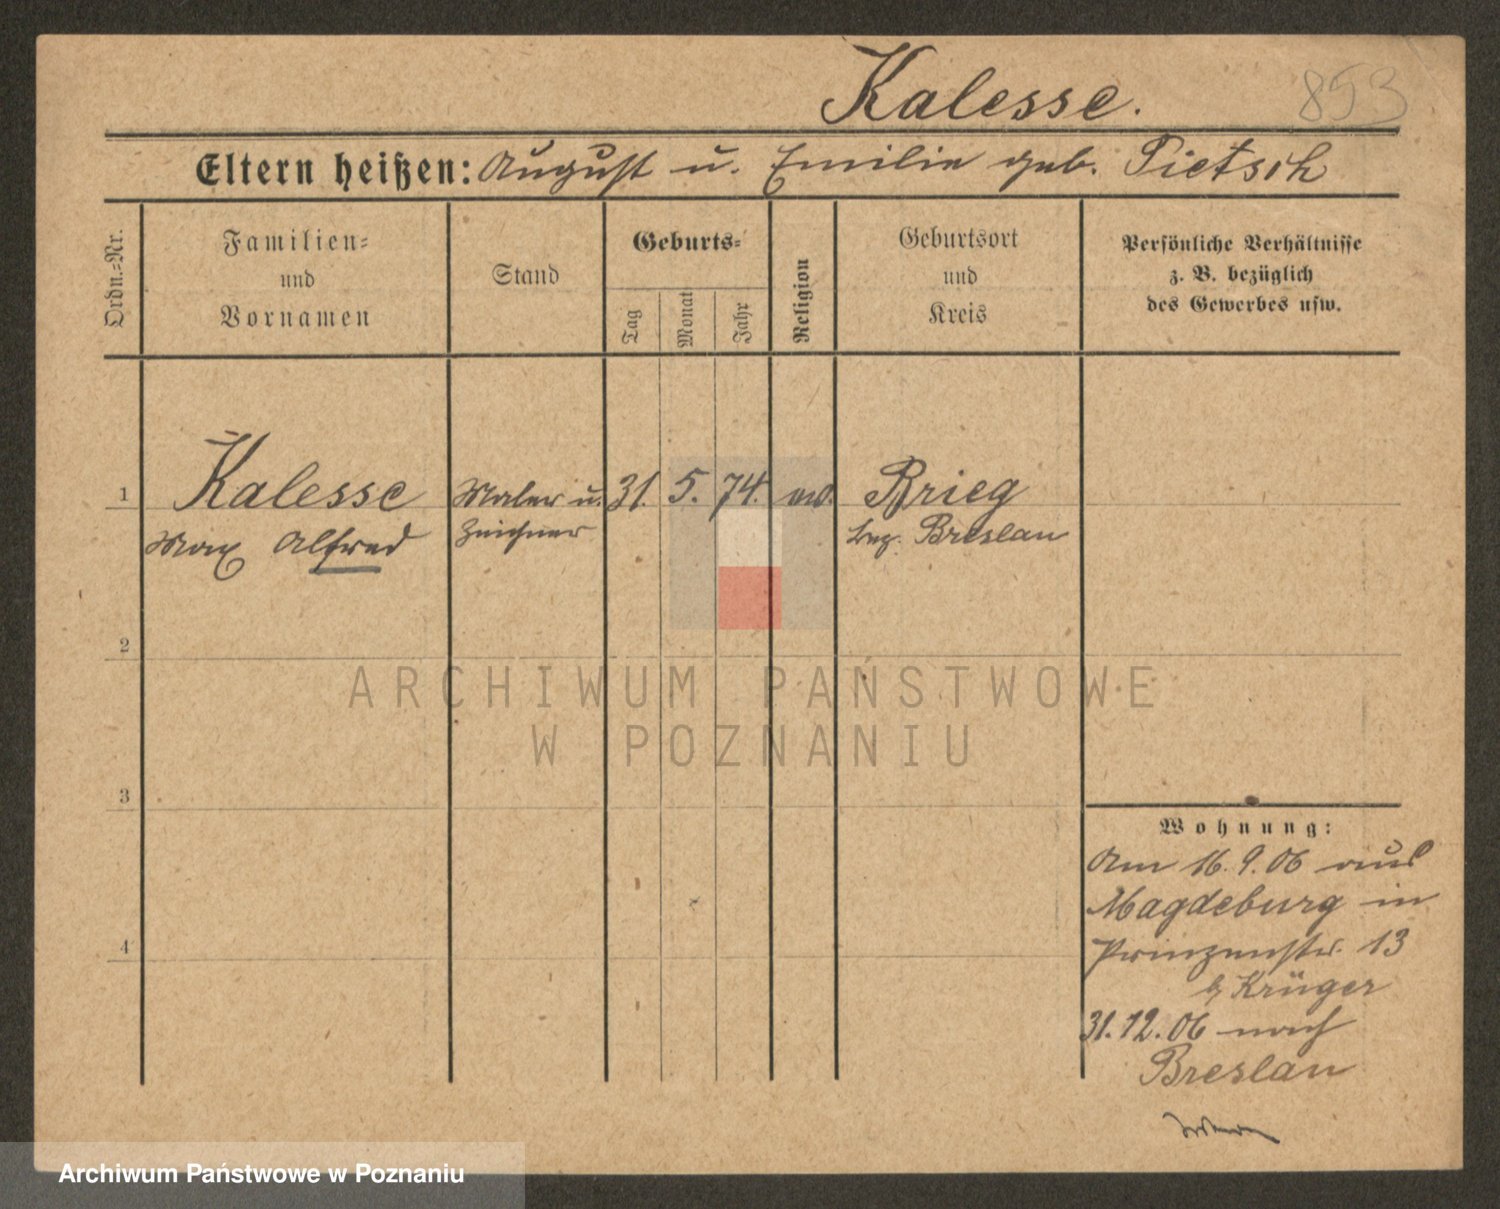 Kalesse.
853
Eltern heißen: August u. Emilie geb. Pietsch
Ordn.-Nr.
Familien-
und
Vornamen
Stand
Geburts-
Tag
Monat
Jahr
Religion
Geburtsort
und
Kreis
Persönliche Verhältnisse
z. B. bezüglich
des Gewerbes usw.
1
Kalesse
Max Alfred
Maler u.
Zeichner
31.
5.
74.
Brieg
bez. Breslau
2
3
4
Wohnung:
Am 16.9.06 aus
Magdeburg in
Prinzenstr. 13
b/ Krüger
31.12.06 nach
Breslau
ARCHIWUM PAŃSTWOWE
W POZNANIU
Archiwum Państwowe w Poznaniu